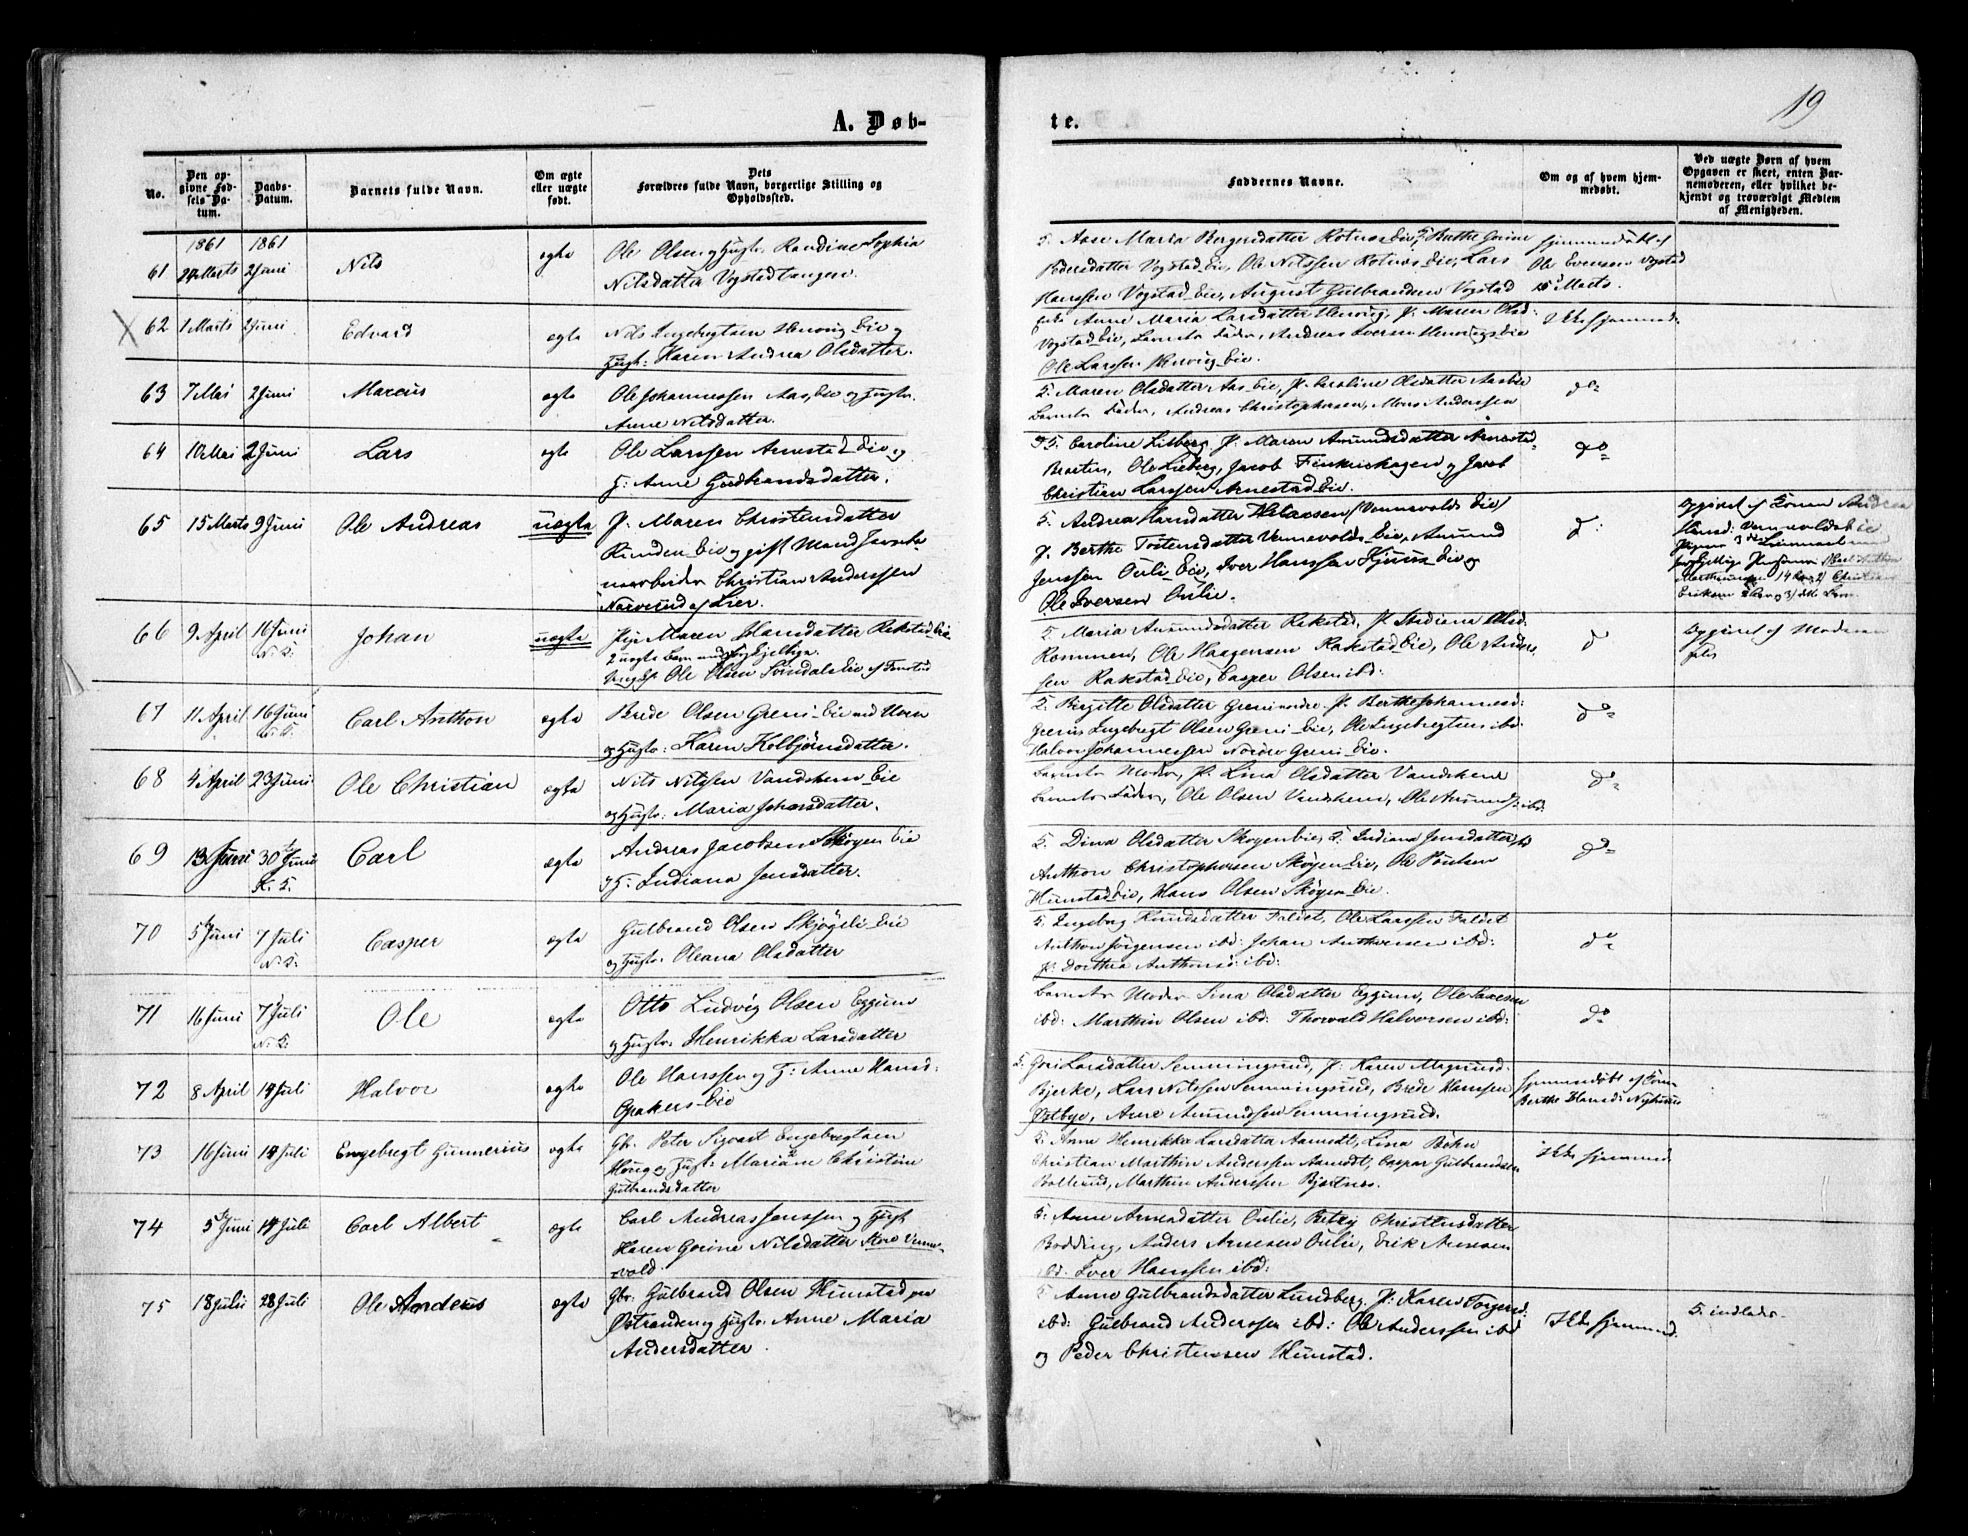 19
A. Døb-
te.
No.
Den op-
givne Fød-
sels Da-
tum.
Daabs-
Datum.
Barnets fulde Navn.
Om ægte
eller uægte
født.
Dets
Forældres fulde Navn, borgerlige Stilling og
Opholdssted.
Faddernes Navne.
Om og af hvem hjem-
medøbt.
Ved uægte Børn af hvem
Opgaven er skeet, enten Bar-
nemoderen, eller hvilket be-
kjendt og troværdigt Medlem
af Menigheden.
1861 1861
61 24 Marts 2 Juni Nils ægte
Ole Olsen og Hustr. Randine Sophia
Nilsdatter Vogstadtangen.
F. Aase Maria Bergersdatter Rotnes Eie, Berthe Gorine
Pedersdatter Vogstad Eie, Ole Nilssen Rotnes Eie, Lars
Hanssen Vogstad Eie, August Gulbrandsen Vogstad
hjemmedøbt af
Ole Evensen Vogstad
25 Marts.
X 62 1 Marts 2 Juni Edvard ægte
Nils Ingebregtsen Hervig Eie og
Hust: Karen Andrea Olsdatter.
Anne Maria Larsdatter Hervig, P. Maren Olsd:
Vogstad Eie, Barnets Fader, Andreas Iversen Hervigs Eie
Ole Larssen Hervig Eie.
Ikke hjemmed:
63 7 Mai 2 Juni Marcus ægte
Ole Johannessen Aas Eie og Hustr.
Anne Nilsdatter.
F. Maren Olsdatter Aas Eie, P. Caroline Olsdatter Aas Eie
Barnets Fader, Andreas Christophersen, Mons Anderssen
do
64 10 Mai 2 Juni Lars ægte
Ole Larssen Arnestad Eie og
H: Anne Gudbrandsdatter.
F. Caroline Lieberg, P. Maren Amundsdatter Arnestad
Braaten, Ole Lieberg, Jacob Finkenhagen og Jacob
Christian Larssen Arnestad Eie.
do
65 15 Marts 9 Juni Ole Andreas uægte
P. Maren Christensdatter
Rinden Eie og gift Mand Jernba-
nearbeider Christian Anderssen
Narverud af Lier.
F. Andrea Hansdatter (Vennevolds Eie)
P. Berthe Tostensdatter Vennevolds Eie, Amund
Jenssen Oulie Eie, Iver Hanssen Kjuus Eie og
Ole Iversen Oulie.
d:
Opgivet af Konen Andrea
Hansd: Vennevolds Eie
66 9 April 16 Juni N. K: Johan uægte
Pige Maren Hansdatter Rakstad Eie
2 uægte Barn med forskjellige.
Ungk. Ole Olsen
F. Maria Amundsdatter Rakstad, P. Indiana Olsd.
Rommen, Ole Haagensen Rakstad Eie, Ole Ander-
sen Rakstad Eie, Casper Olsen ibd:
d
Opgivet af Moderen
selv
67 11 April 16 Juni N. K: Carl Anthon ægte
Brede Olsen Greni Eie
og Hustr: Karen Kolbjørnsdatter.
F. Birgitte Olsdatter Greni nordre. P. Berthe Johannesd:
Ingebregt Olsen Greni Eie, Ole Ingebregtsen ibd:
Halvor Johannessen Nordre Greni Eie.
do
68 4 April 23 Juni Ole Christian ægte
Nils Nilssen Vandskem Eie
og Hustr: Maria Johansdatter.
Barnets Moder, P. Lina Olsdatter Vandskem
Barnets Fader, Ole Olsen Vandskem, Ole ibd:
do
69 13 Juni 30 Juni K. K. Carl ægte
Andreas Jacobsen Skøyen Eie
H: Indiana Jensdatter.
F. Dina Olsdatter Skøyen Eie, Indiana Jensdatter
Anthon Christophersen Skøyen Eie, Ole Poulsen
Hunstad Eie, Hans Olsen Skøyen Eie.
do
70 5 Juni 7 Juli N. K: Casper ægte
Gulbrand Olsen Skjøgeli Eie
og Hustr: Oleana Olsdatter
F. Ingeborg Knudsdatter Faldet, Ole Larssen Faldet
Anthon Jørgensen ibd: Johan Anthonsen ibd:
P. Dorthea Anthonsd: ibd:
do
71 16 Juni 7 Juli N. K: Ole ægte
Otto Ludvig Olsen Eggum
og Hustr. Henrikka Larsdatter
Barnets Moder Sina Olsdatter Eggum, Ole Larsen
ibd: Marthin Olsen ibd: Thorvald Halvorsen ibd:
do
72 8 April 14 Juli Halvor ægte
Ole Hanssen og H: Anne Hansd:
Gjøkers Eie
F. Gori Larsdatter Semmingsrud, P. Karen Magnusd.
Bjerke, Lars Nilssen Semmingsrud, Brede Hanssen
Østbye, Arne Amundsen Semmingsrud.
hjemmedøbt af Kone
Berthe Hansd: Nyhuus
73 16 Juni 14 Juli Engebregt Gunnerius ægte
Gbr. Peter Sigvart Engebregtsen
Houg og Hust: Mariane Christine
Gulbrandsdatter
F. Anne Henrikka Larsdatter Aamodt, Lina Bøhn
Christian Marthin Anderssen Aamodt, Caspar Gulbrandsen
Bollerud, Marthin Anderssen Bjertnæs.
Ikke hjemmed.
74 5 Juni 14 Juli Carl Albert ægte
Carl Andreas Jenssen og Hust
Karen Gorine Nilsdatter Moe Venne-
vold.
F. Anne Arnesdatter Oulie, Betzy Christensdatter
Bodding, Anders Arnesen Oulie, Erik Arnesen
ibd. Iver Hanssen ibd:
75 18 Juli 28 Juli Ole Andeus ægte
Gbr: Gulbrand Olsen Hunstad paa
Østranden og Hustr: Anne Maria
Andersdatter.
F Anne Gulbrandsdatter Lundberg, P: Karen Torgersd:
ibd: Gulbrand Anderssen ibd: Ole Anderssen ibd
og Peder Christenssen Hunstad.
Ikke hjemmed:
F. indlader